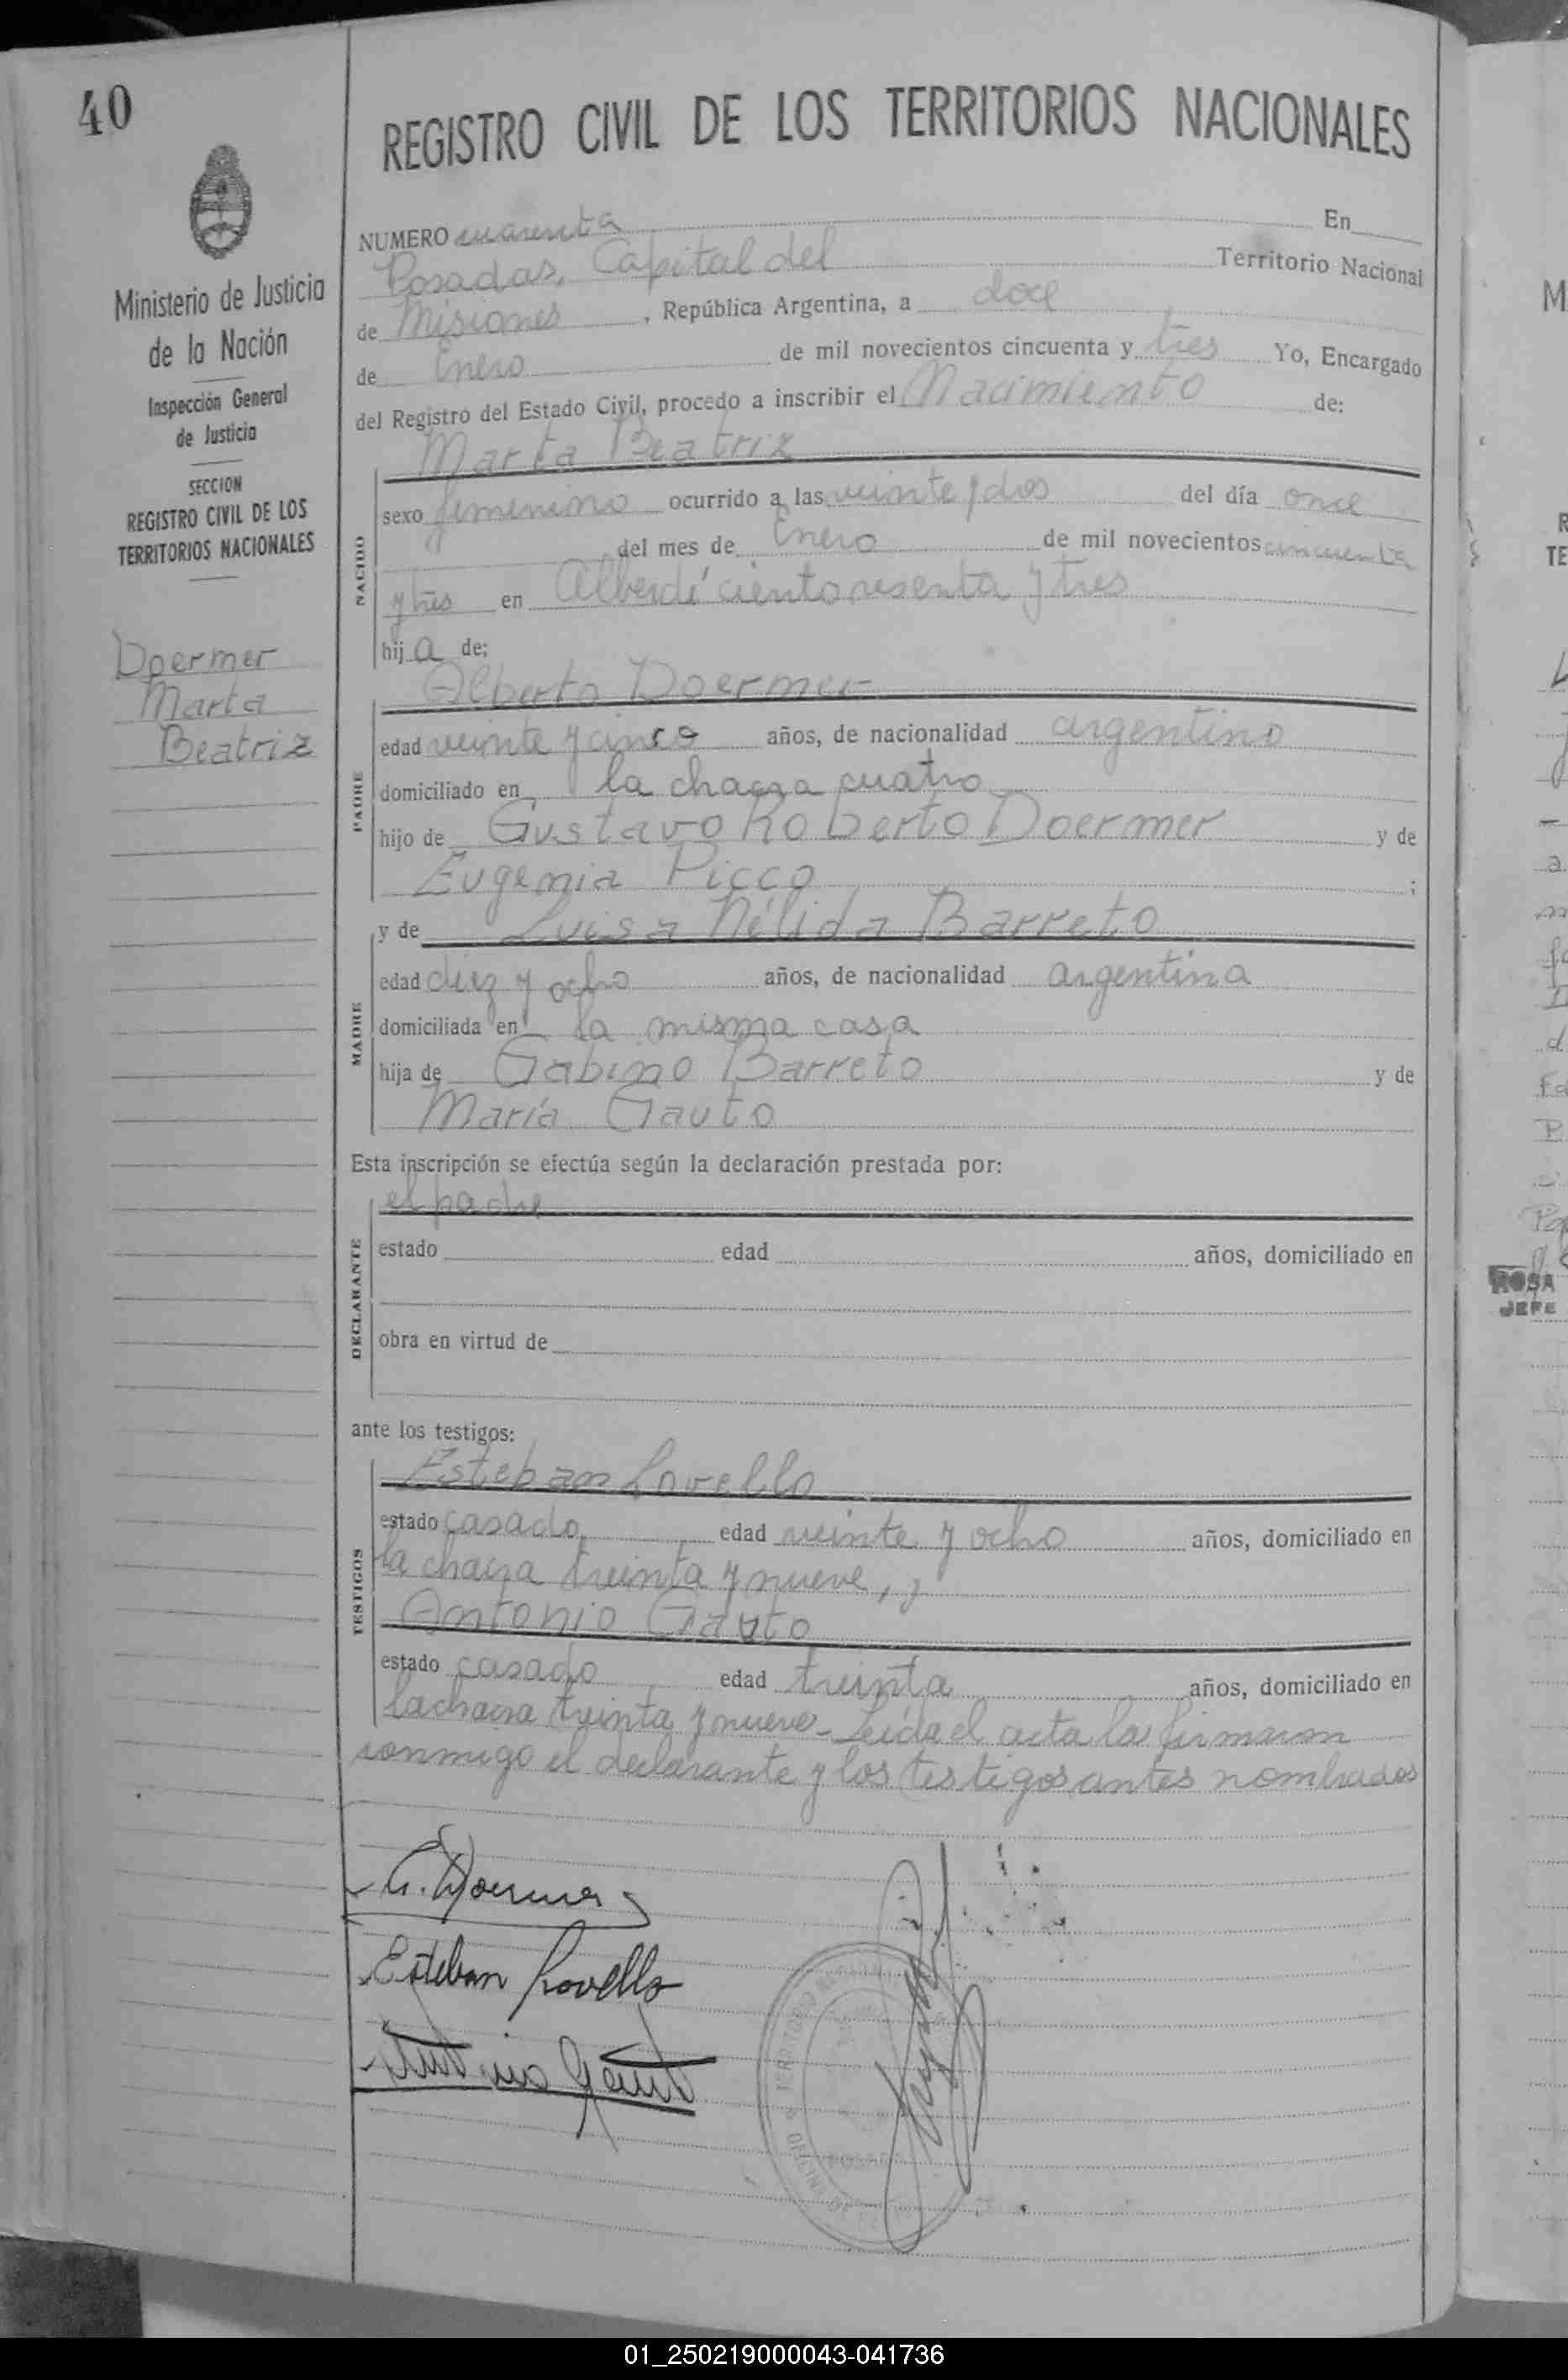 40
REGISTRO CIVIL DE LOS TERRITORIOS NACIONALES
Ministerio de Justicia
de la Nación
Inspección General
de Justicia
SECCION
REGISTRO CIVIL DE LOS
TERRITORIOS NACIONALES
Doermer
Marta
Beatriz
NUMERO cuarenta En
Posadas, Capital del Territorio Nacional
de Misiones, República Argentina, a doce
de Enero de mil novecientos cincuenta y tres Yo, Encargado
del Registro del Estado Civil, procedo a inscribir el Nacimiento de:
Marta Beatriz
NACIDO
sexo femenino ocurrido a las veinte y dos del día once
del mes de Enero de mil novecientos cincuenta
y tres en Alberdi ciento sesenta y tres
hija de;
Alberto Doermer
PADRE
edad veinte y cinco años, de nacionalidad argentino
domiciliado en la chacra cuatro
hijo de Gustavo Roberto Doermer y de
Eugenia Picco ;
y de Luisa Nélida Barreto
MADRE
edad diez y ocho años, de nacionalidad argentina
domiciliada en la misma casa
hija de Gabino Barreto y de
María Gauto
Esta inscripción se efectúa según la declaración prestada por:
el padre
DECLARANTE
estado edad años, domiciliado en
obra en virtud de
ante los testigos:
Esteban Lovello
TESTIGOS
estado casado edad veinte y ocho años, domiciliado en
la chacra treinta y nueve, y
Antonio Gauto
estado casado edad treinta años, domiciliado en
la chacra treinta y nueve - Leída el acta la firmaron
conmigo el declarante y los testigos antes nombrados
A. Doermer
Esteban Lovello
Antonio Gauto
TERRITORIO
ROSA
JEFE
01_250219000043-041736